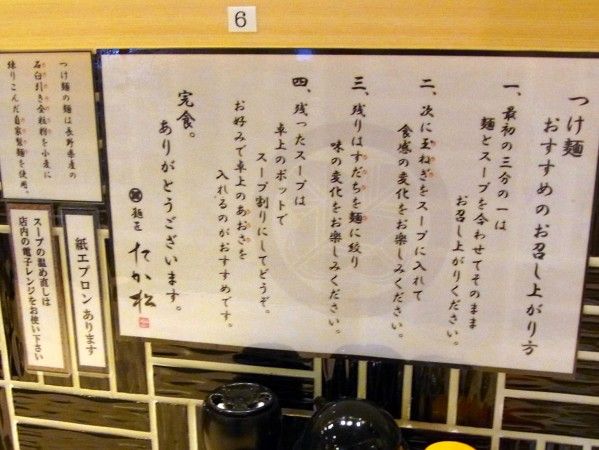 6
つけ麺
おすすめのお召し上がり方
一、最初の三分の一は
麺とスープを合わせてそのまま
お召し上がりください。
二、次に玉ねぎをスープに入れて
食感の変化をお楽しみください。
三、残りはすだちを麺に絞り
味の変化をお楽しみください。
四、残ったスープは
卓上のポットで
スープ割りにしてどうぞ。
お好みで卓上のあおさを
入れるのがおすすめです。
完食。
ありがとうございます。
麺匠 たか松
つけ麺の麺は長野県産の
石臼引き全粒粉を小麦に
練りこんだ自家製麺を使用。
紙エプロンあります
スープの温め直しは
店内の電子レンジをお使い下さい